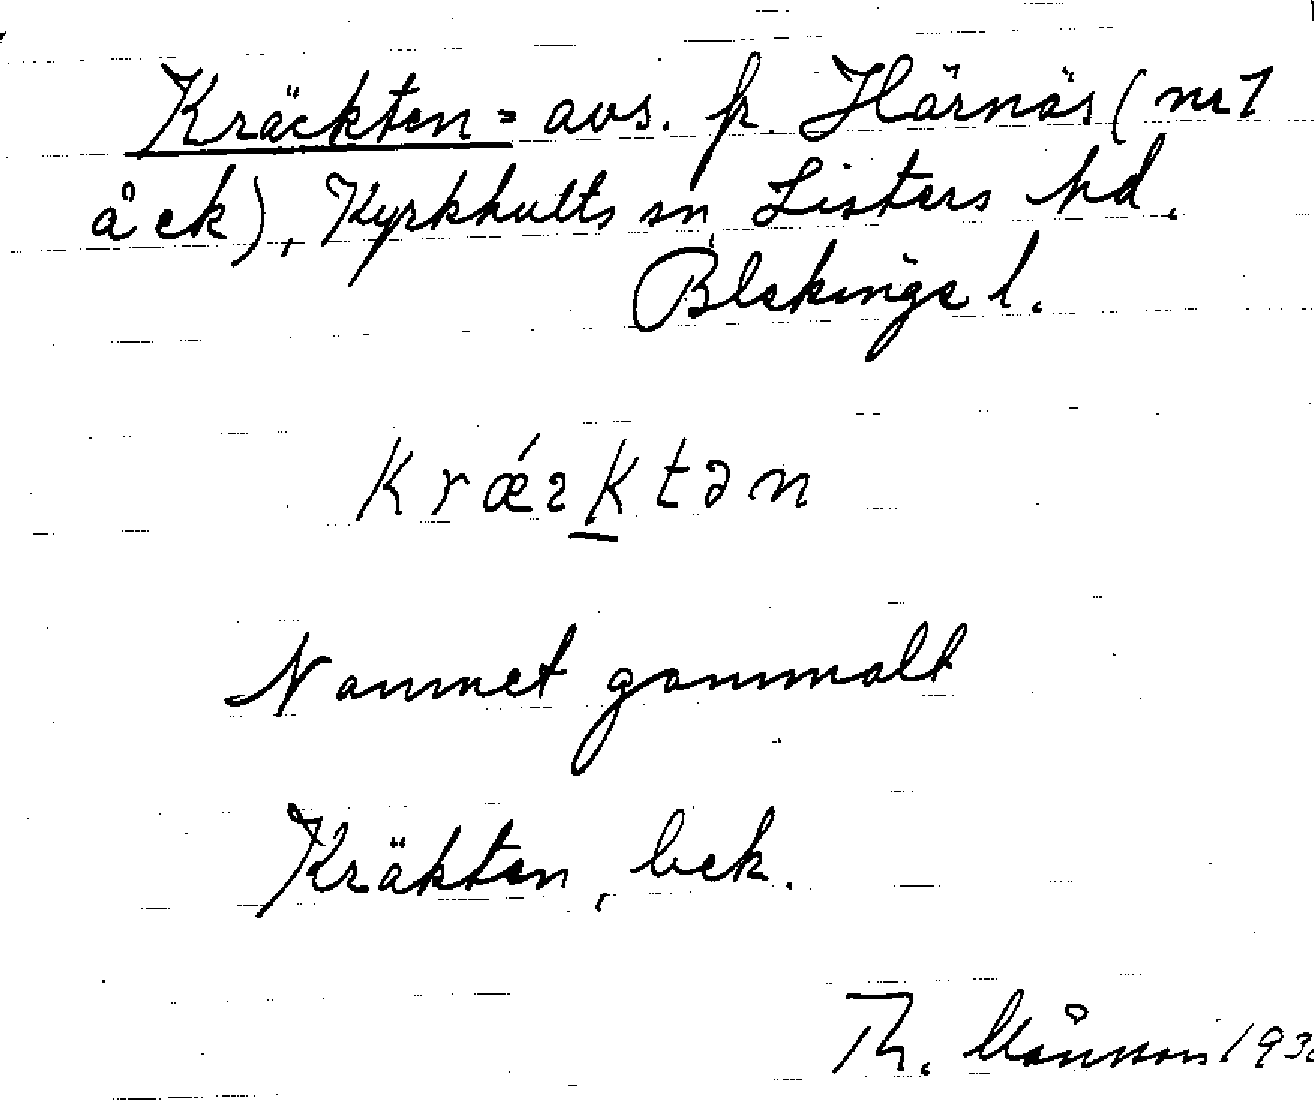 Kräckten = avs. fr. Härnäs (nr 1
å ek), Kyrkhults sn, Listers hd.
Blekinge l.
Krǽzktən
Namnet gammalt
Kräkten, bek.
Th. Månsson